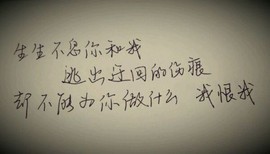 生生不息你和我
逃出迂回的伤痕
却不能为你做什么 我恨我